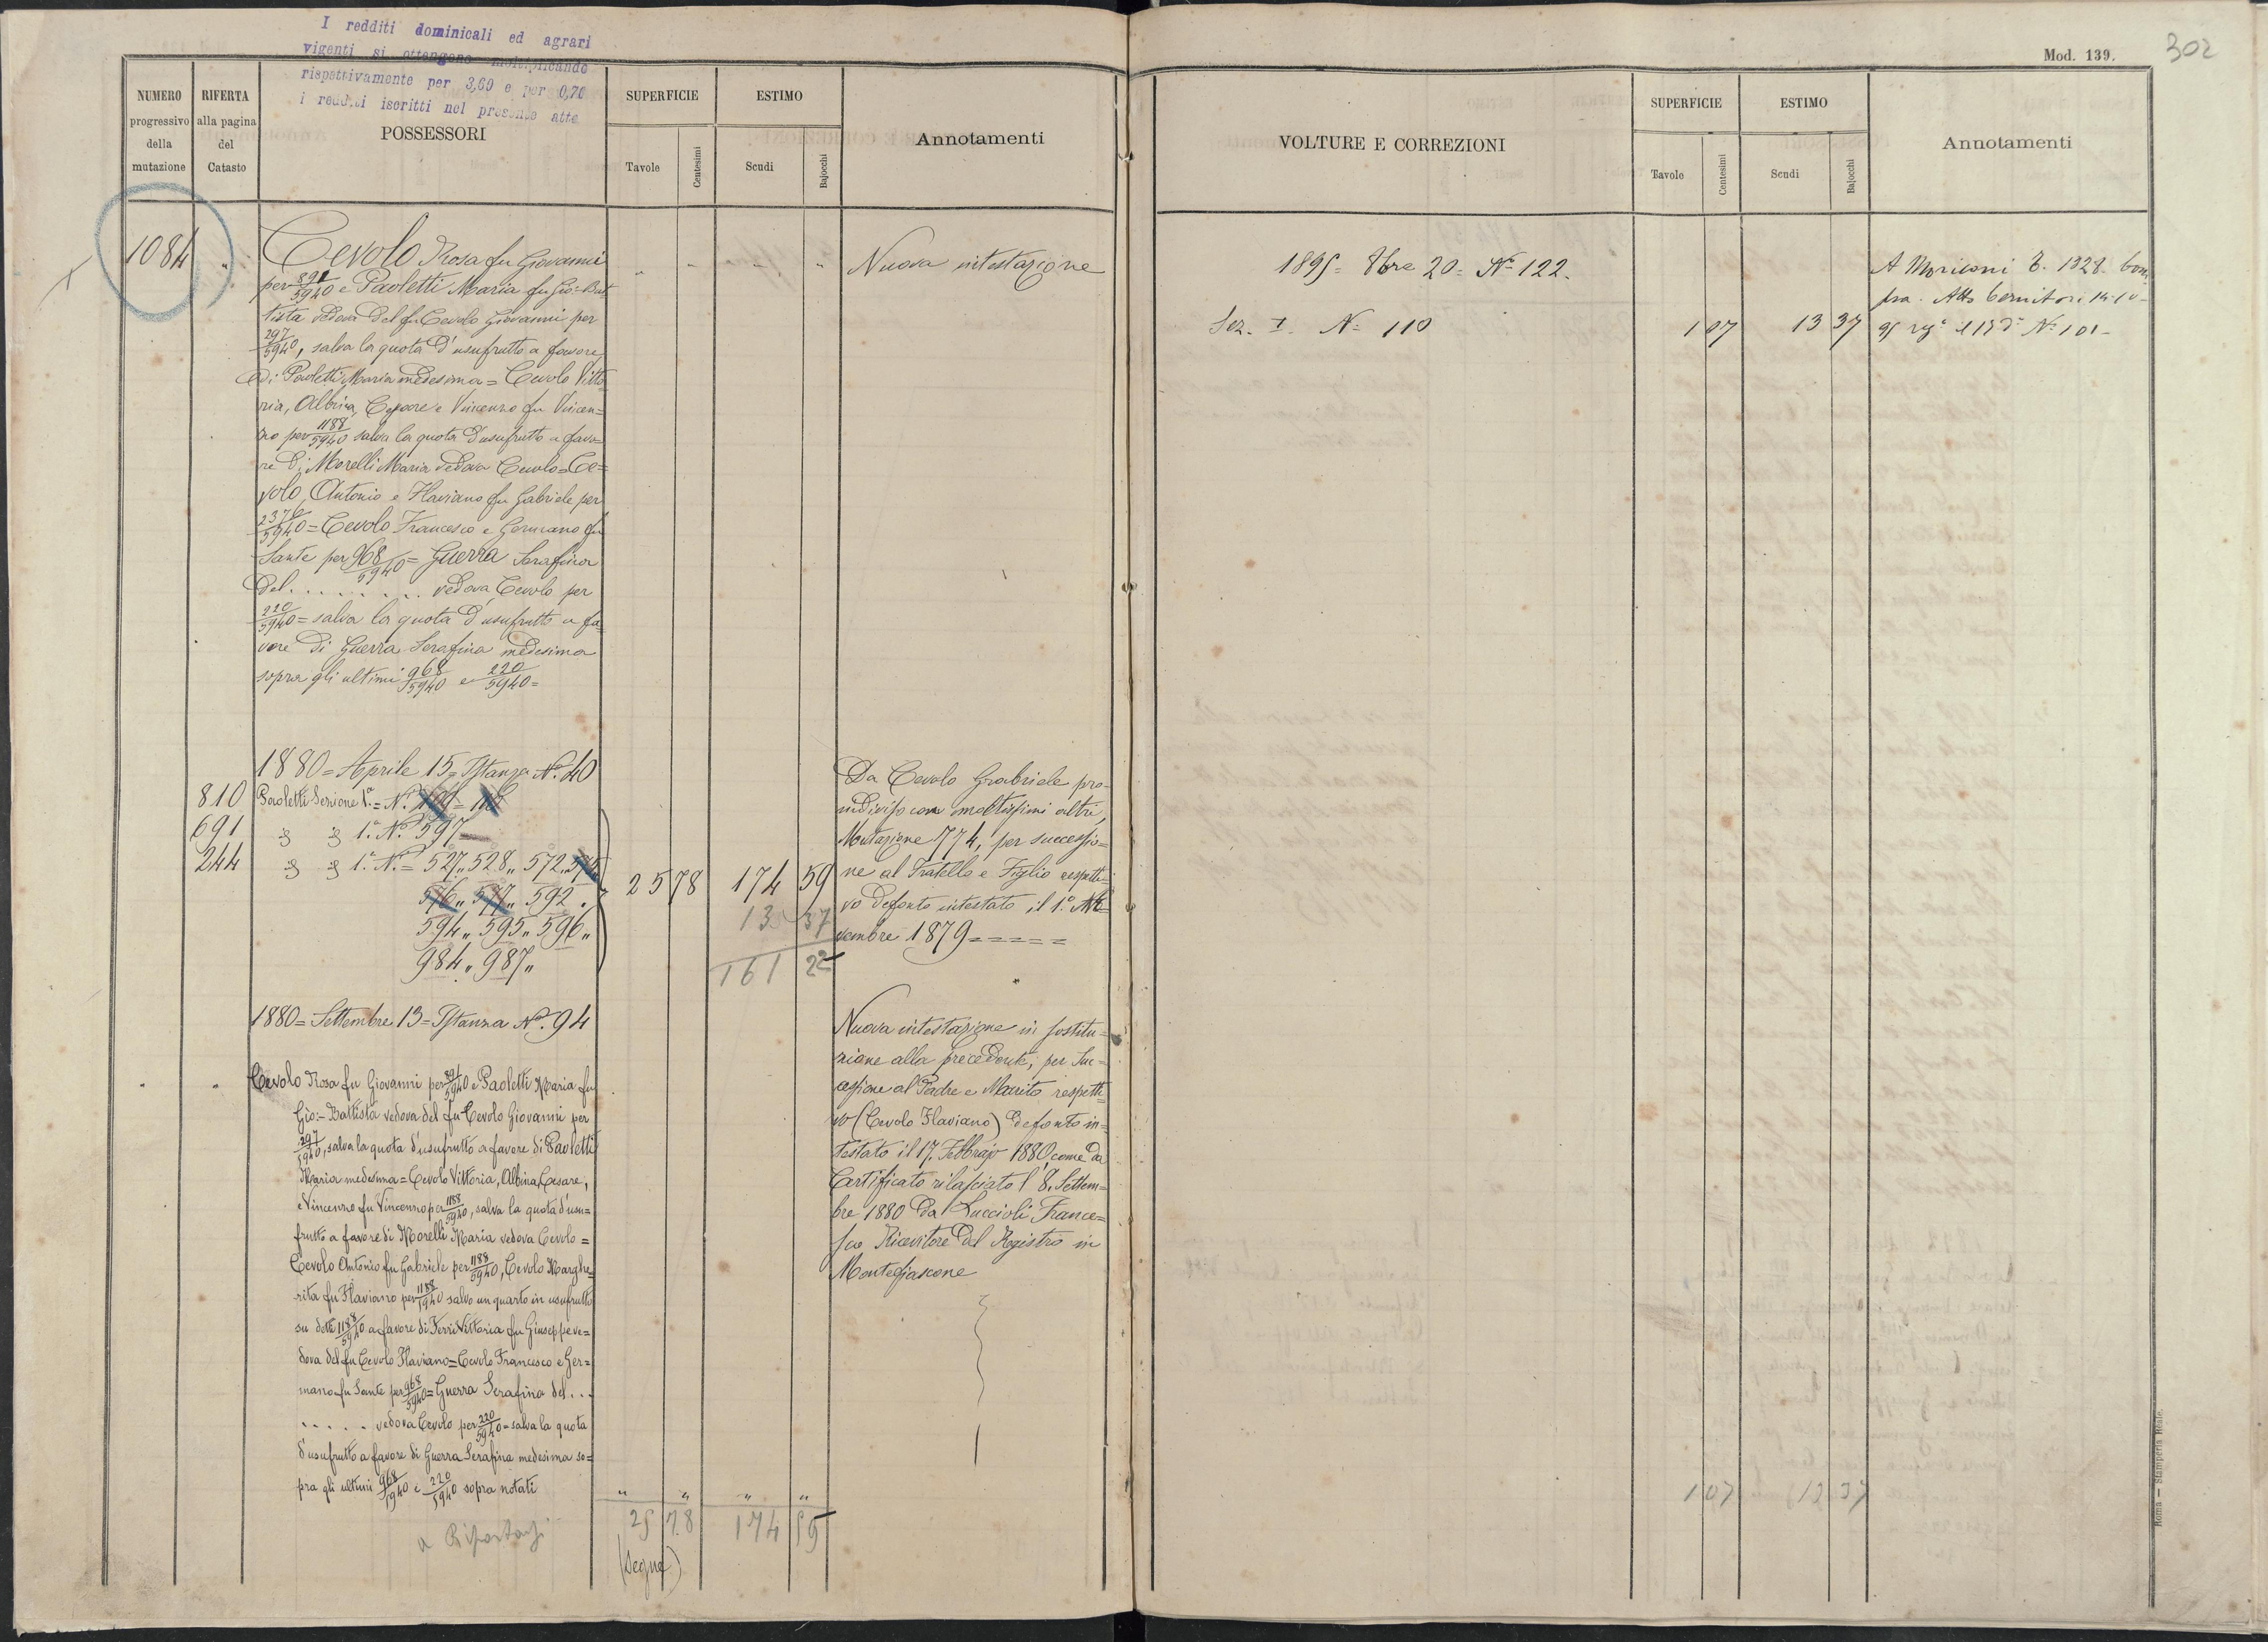 I redditi dominicali ed agrari
vigenti si ottengono moltiplicando
rispettivamente per 3,60 e per 0,70
i redditi iscritti nel presente atto
NUMERO
progressivo
della
mutazione
RIFERTA
alla pagina
del
Catasto
POSSESSORI
SUPERFICIE
Tavole
Centesimi
ESTIMO
Scudi
Bajocchi
Annotamenti
1084 "
Cevolo Rosa fu Giovanni
per 891/5940 e Paoletti Maria fu Gio: Bat
tista vedova del fu Cevolo Giovanni per
297/5940, salva la quota d'usufrutto a favore
di Paoletti Maria medesima = Cevolo Vitto
ria, Albina, Cesare e Vincenzo fu Vincen=
zo per 1188/5940 salva la quota d'usufrutto a favo=
re di Morelli Maria vedova Cevolo = Ce=
volo Antonio e Flaviano fu Gabriele per
2376/5940 = Cevolo Francesco e Germano fu
Sante per 968/5940 = Guerra Serafina
del . . . . . . . . vedova Cevolo per
220/5940 = salva la quota d'usufrutto a fa=
vore di Guerra Serafina medesima
sopra gli ultimi 968/5940 e 220/5940 =
" - - "
Nuova intestazione
1880 = Aprile 15 = Istanza N.º 40
810 Paoletti Sezione 1.ª = N.º
691 " " 1.ª N.º 597
244 " " 1.ª N.º = 527 " 528 " 572 "
576 " 577 " 592 "
594 " 595 " 596 "
984 " 987 "
25 78 174 59
13 37
161 22
Da Cevolo Gabriele pro=
indiviso con moltissimi altri,
Mutazione 774, per successio=
ne al Fratello e Figlio respetti=
vo defonto intestato il 1.º No
vembre 1879 =====
1880 = Settembre 13 = Istanza N.º 94
" "
Cevolo Rosa fu Giovanni per 891/5940 e Paoletti Maria fu
Gio:- Battista vedova del fu Cevolo Giovanni per
297/5940, salva la quota d'usufrutto a favore di Paoletti
Maria medesima = Cevolo Vittoria, Albina, Cesare,
e Vincenzo fu Vincenzo per 1188/5940, salva la quota d'usu=
frutto a favore di Morelli Maria vedova Cevolo =
Cevolo Antonio fu Gabriele per 1188/5940, Cevolo Marghe=
rita fu Flaviano per 1188/5940 salvo un quarto in usufrutto
su detti 1188/5940 a favore di Ferri Vittoria fu Giuseppe ve=
dova del fu Cevolo Flaviano = Cevolo Francesco e Ger=
mano fu Sante per 968/5940 = Guerra Serafina del . . .
. . . . . vedova Cevolo per 220/5940 = salva la quota
d'usufrutto a favore di Guerra Serafina medesima so=
pra gli ultimi 968/5940 e 220/5940 sopra notati
" " " "
a Riportarsi
25 78 174 59
(Segue)
Nuova intestazione in sostitu=
zione alla precedente, per Suc=
cessione al Padre e Marito respetti=
vo (Cevolo Flaviano) defonto in=
testato il 17. Febbrajo 1880, come da
Certificato rilasciato l' 8. Settem=
bre 1880 da Luccioli France=
sco Ricevitore del Registro in
Montefiascone
302
Mod. 139.
VOLTURE E CORREZIONI
SUPERFICIE
Tavole
Centesimi
ESTIMO
Scudi
Bajocchi
Annotamenti
1895 = 8bre 20 = N.º 122.
Sez. I. N.º 110
1 07 13 37
A Moriconi P. 1328. Com
pra. Atto 14-10-
95 reg.º il 19 d.º N.º 101-
1 07 13 37
Roma — Stamperia Reale.